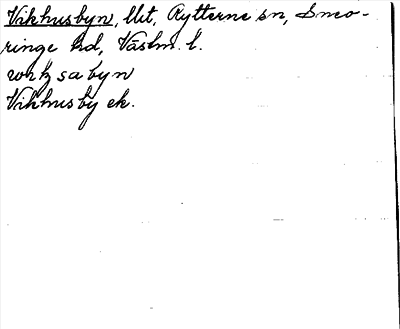 Vikhusbyn, llit, Rytterne sn, Snev-
ringe hd, Västm. l.
byn
Vikhusby ek.